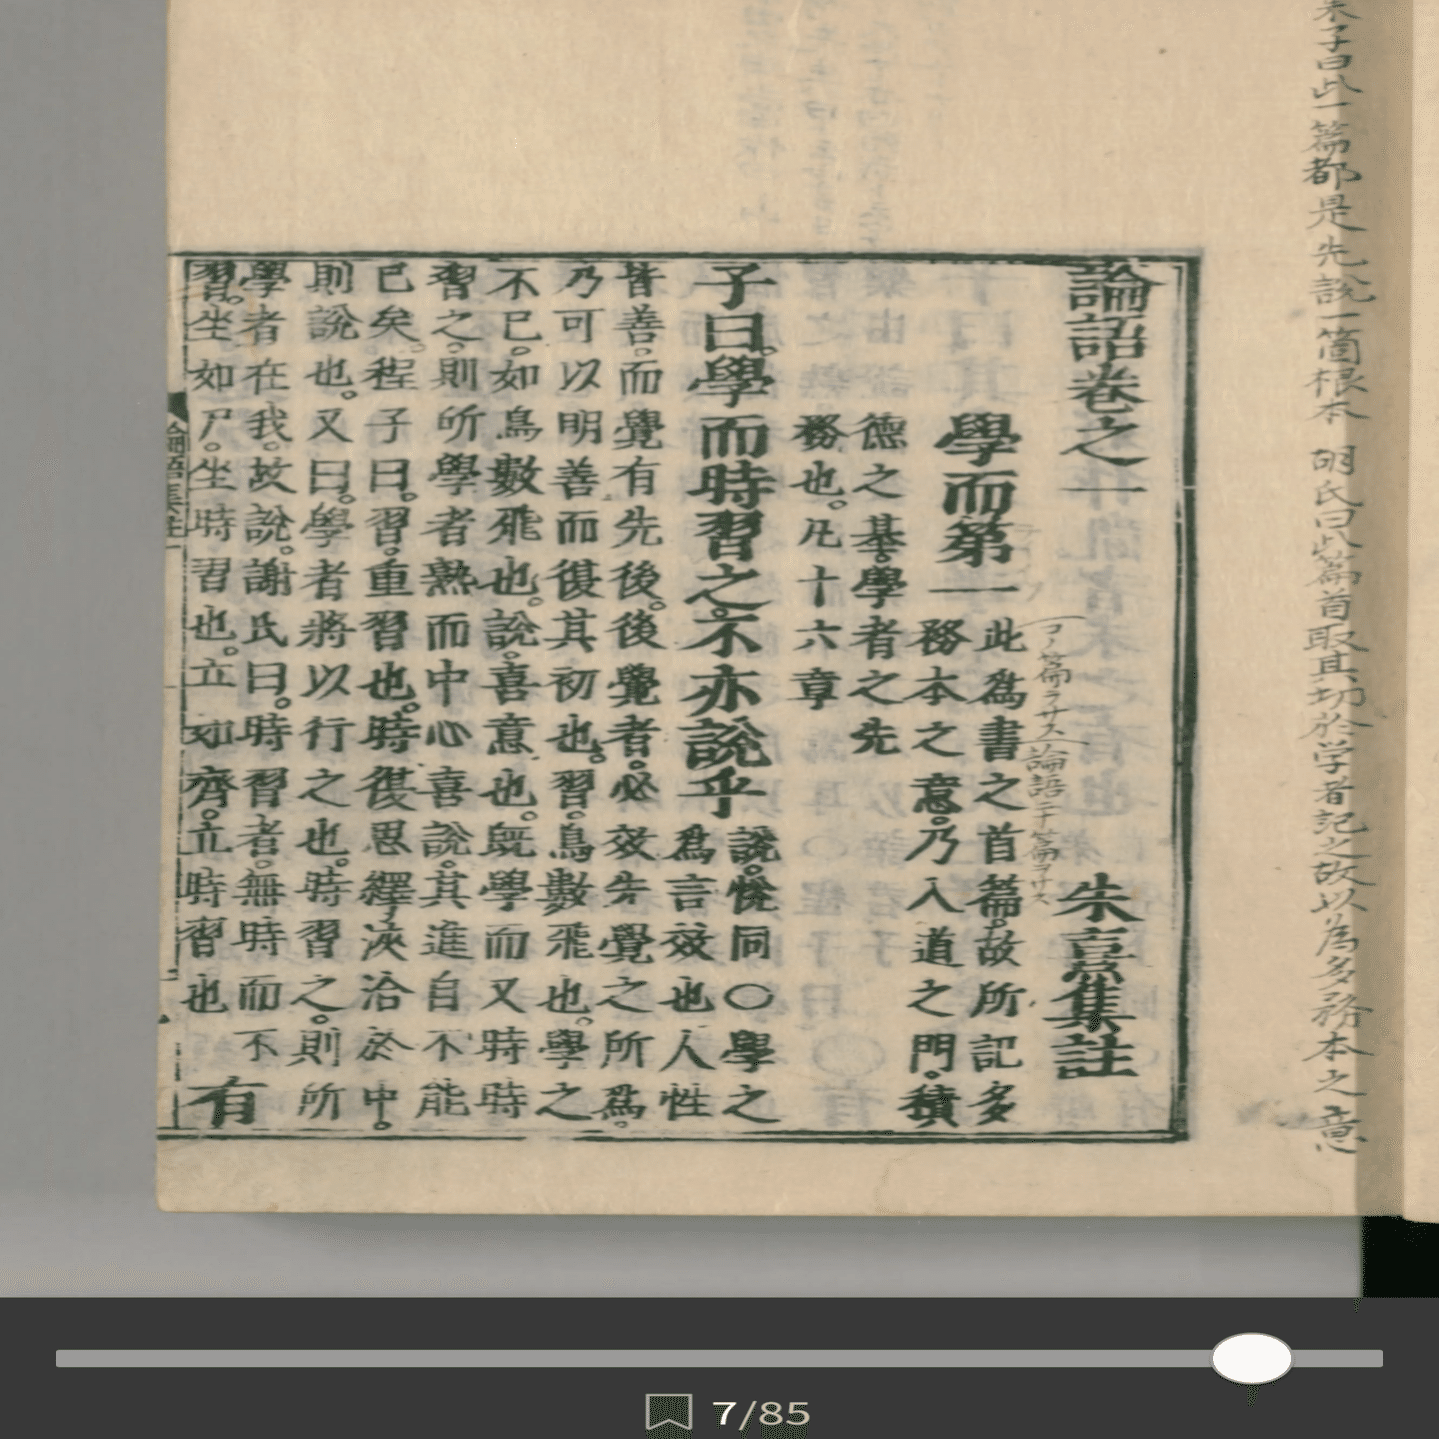 朱子曰此一篇都是先說一箇根本 胡氏曰此篇首取其切於学者記之故以為多務本之意
論語卷之一 朱熹集註
コノ篇ヲサス 論語二十篇ヲサス
學而第一
此爲書之首篇。故所記多
務本之意。乃入道之門。積
德之基。學者之先
務也。凡十六章
子曰。學而時習之。不亦說乎
說。悅同○學之
爲言效也人性
皆善。而覺有先後。後覺者。必效先覺之所爲。
乃可以明善而復其初也。習。鳥數飛也。學之
不已。如鳥數飛也。說。喜意也。既學而又時時
習之。則所學者熟而中心喜說。其進自不能
已矣。程子曰。習。重習也。時復思繹浹洽於中。
則說也。又曰。學者將以行之也。時習之。則所
學者在我。故說。謝氏曰。時習者。無時而不
習。坐如尸。坐時習也。立如齊。立時習也
有
論語集註
7/85